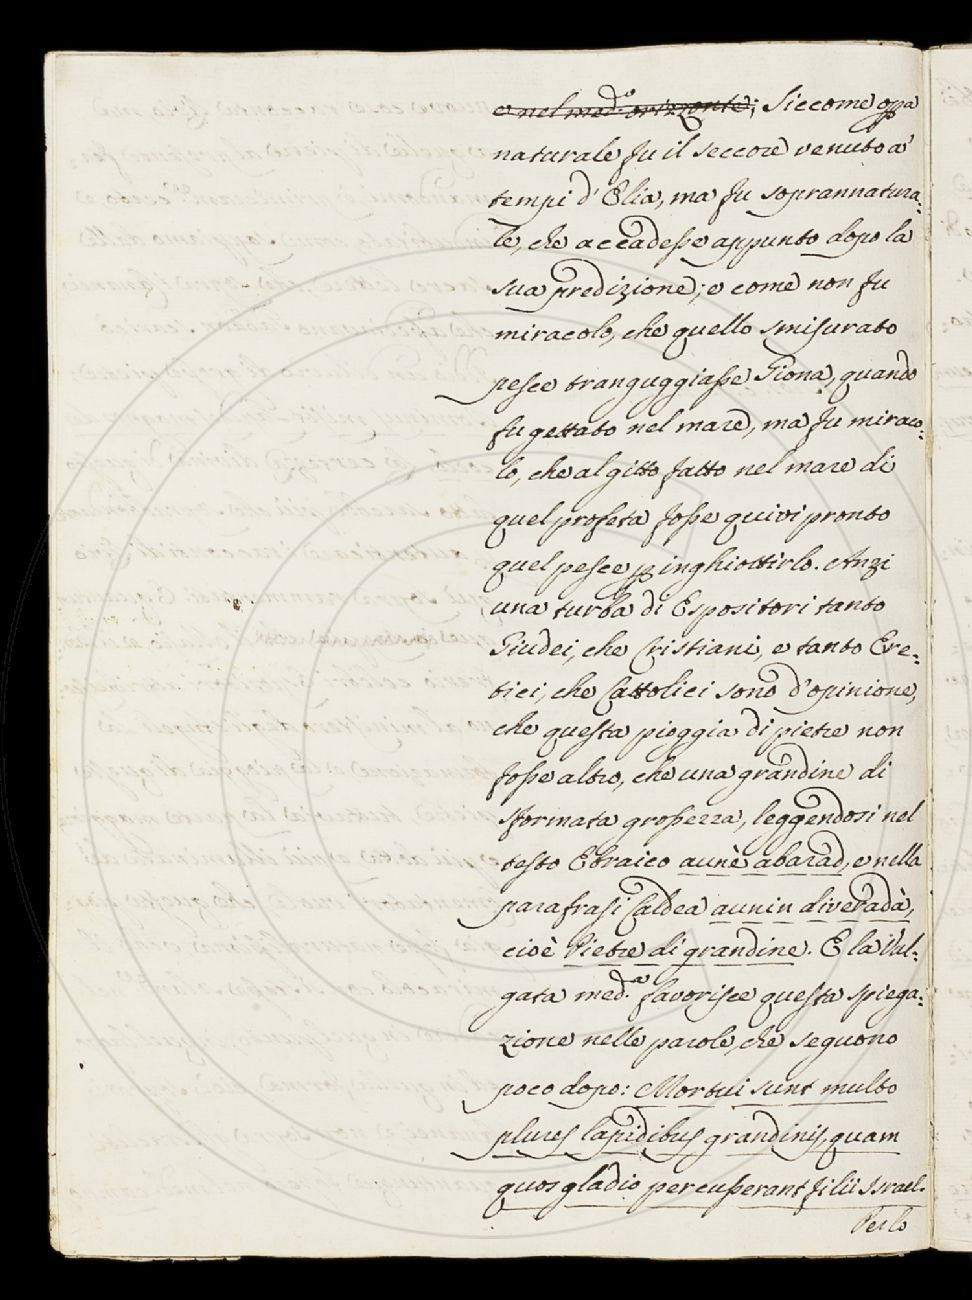 e nel med.º orizzonte; Siccome opa
naturale fu il seccore venuto a'
tempi d' Elia, ma fu soprannatura:
le, che accadesse appunto dopo la
sua predizione; e come non fu
miracolo, che quello smisurato
pesce tranguggiasse Giona, quando
fu gettato nel mare, ma fu miraco:
lo, che al gitto fatto nel mare di
quel profeta fosse quivi pronto
quel pesce p inghiottirlo. Anzi
una turba di Espositori tanto
Giudei, che Cristiani, e tanto Ere:
tici, che Cattolici sono d'opinione,
che questa pioggia di pietre non
fosse altro, che una grandine di
sformata grossezza, leggendosi nel
testo Ebraico aunè abarad, e nella
parafrasi Caldea aunin diveradà,
cioè Pietre di grandine. E la Vul:
gata med.ª favorisce questa spiega:
zione nelle parole, che seguono
poco dopo: Mortui sunt multo
plures lapidibus grandinis, quam
quos gladio percusserant filii Israel.
Per lo